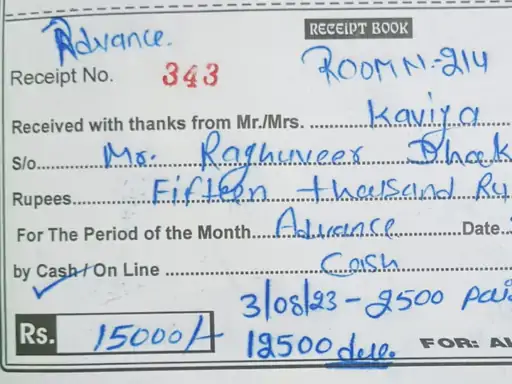 Advance.
RECEIPT BOOK
Receipt No. 343
ROOM N-214
Received with thanks from Mr./Mrs. Kaviya
S/o Mr. Raghuveer Dhak
Rupees Fifteen thousand Ru
For The Period of the Month Advance Date
by Cash / On Line Cash
3/08/23 - 2500 pai
Rs. 15000/-
12500 due.
FOR: AL